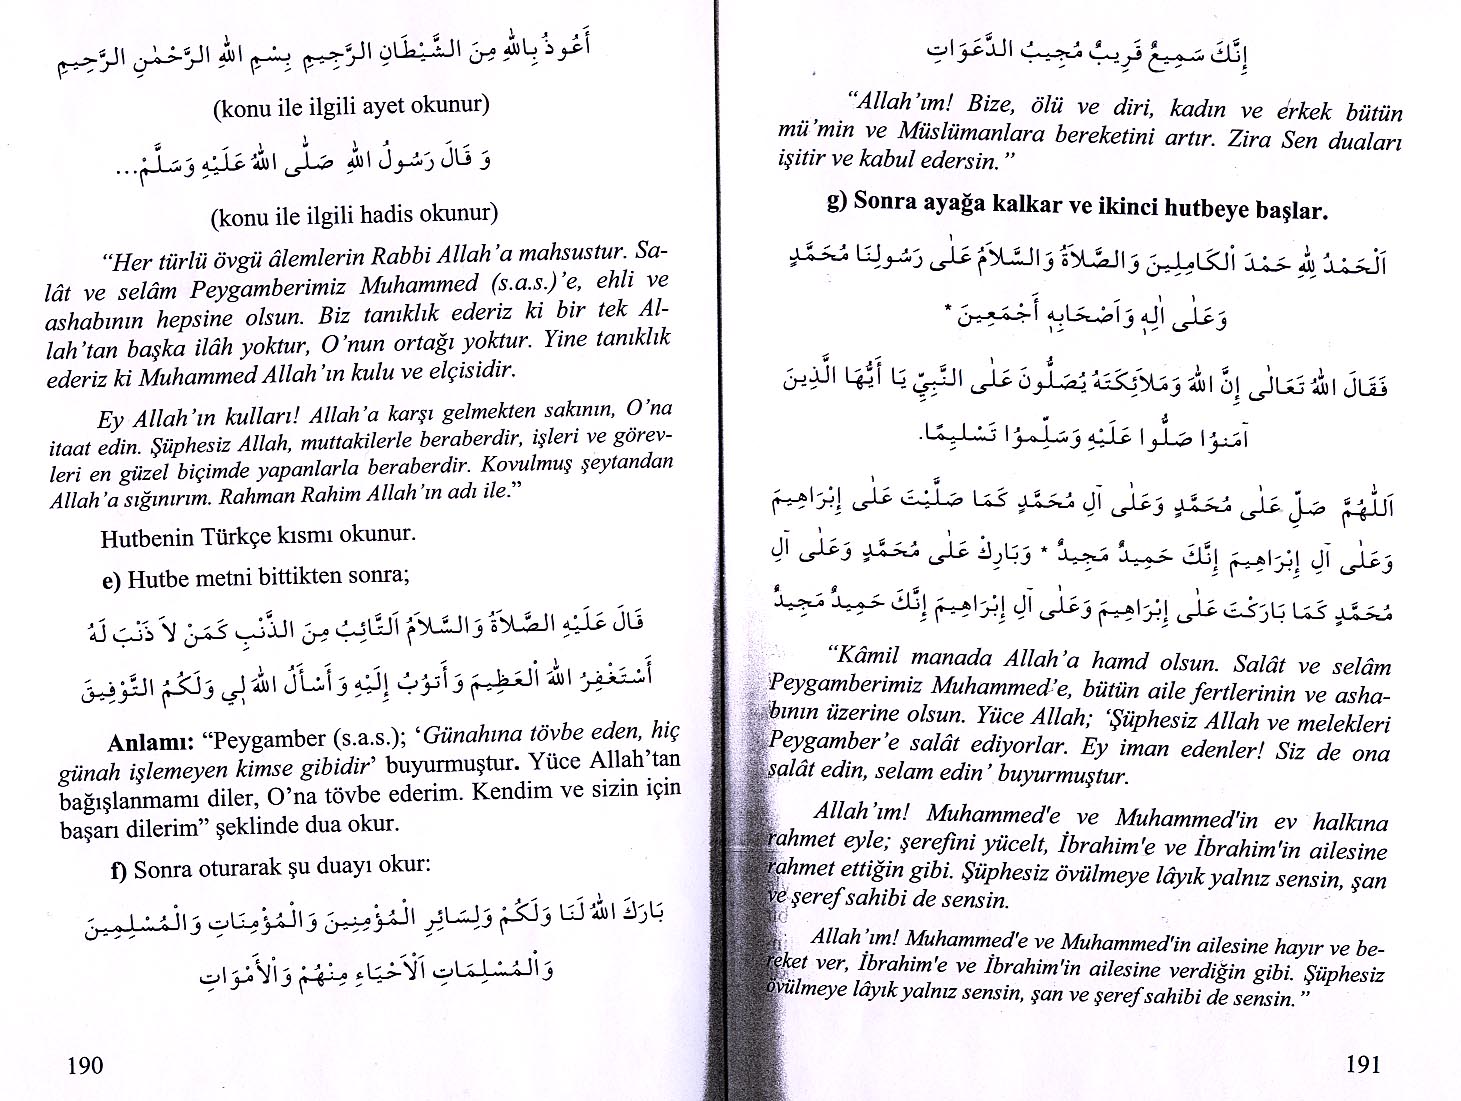 أَعُوذُ بِاللهِ مِنَ الشَّيْطَانِ الرَّجِيمِ بِسْمِ اللهِ الرَّحْمٰنِ الرَّحِيمِ
(konu ile ilgili ayet okunur)
وَ قَالَ رَسُولُ اللهِ صَلَّى اللهُ عَلَيْهِ وَسَلَّمْ...
(konu ile ilgili hadis okunur)
“Her türlü övgü âlemlerin Rabbi Allah’a mahsustur. Sa-
lât ve selâm Peygamberimiz Muhammed (s.a.s.)’e, ehli ve
ashabının hepsine olsun. Biz tanıklık ederiz ki bir tek Al-
lah’tan başka ilâh yoktur, O’nun ortağı yoktur. Yine tanıklık
ederiz ki Muhammed Allah’ın kulu ve elçisidir.
Ey Allah’ın kulları! Allah’a karşı gelmekten sakının, O’na
itaat edin. Şüphesiz Allah, muttakilerle beraberdir, işleri ve görev-
leri en güzel biçimde yapanlarla beraberdir. Kovulmuş şeytandan
Allah’a sığınırım. Rahman Rahim Allah’ın adı ile.”
Hutbenin Türkçe kısmı okunur.
e) Hutbe metni bittikten sonra;
قَالَ عَلَيْهِ الصَّلاَةُ وَالسَّلاَمُ اَلتَّائِبُ مِنَ الذَّنْبِ كَمَنْ لاَ ذَنْبَ لَهُ
أَسْتَغْفِرُ اللهَ الْعَظِيمَ وَأَتُوبُ إِلَيْهِ وَأَسْأَلُ اللهَ لِي وَلَكُمُ التَّوْفِيقَ
Anlamı: “Peygamber (s.a.s.); ‘Günahına tövbe eden, hiç
günah işlemeyen kimse gibidir’ buyurmuştur. Yüce Allah’tan
bağışlanmamı diler, O’na tövbe ederim. Kendim ve sizin için
başarı dilerim” şeklinde dua okur.
f) Sonra oturarak şu duayı okur:
بَارَكَ اللهُ لَنَا وَلَكُمْ وَلِسَائِرِ الْمُؤْمِنِينَ وَالْمُؤْمِنَاتِ وَالْمُسْلِمِينَ
وَالْمُسْلِمَاتِ اَلْاَحْيَاءِ مِنْهُمْ وَالْأَمْوَاتِ
190
إِنَّكَ سَمِيعٌ قَرِيبٌ مُجِيبُ الدَّعَوَاتِ
“Allah’ım! Bize, ölü ve diri, kadın ve erkek bütün
mü’min ve Müslümanlara bereketini artır. Zira Sen duaları
işitir ve kabul edersin.”
g) Sonra ayağa kalkar ve ikinci hutbeye başlar.
اَلْحَمْدُ لِلّٰهِ حَمْدَ الْكَامِلِينَ وَالصَّلاَةُ وَالسَّلاَمُ عَلٰى رَسُولِنَا مُحَمَّدٍ
وَعَلٰى اٰلِهِ وَاَصْحَابِهِ أَجْمَعِينَ *
فَقَالَ اللهُ تَعَالٰى إِنَّ اللهَ وَمَلاَئِكَتَهُ يُصَلُّونَ عَلَى النَّبِيِّ يَا أَيُّهَا الَّذِينَ
آمَنُوا صَلُّوا عَلَيْهِ وَسَلِّمُوا تَسْلِيمًا.
اَللّٰهُمَّ صَلِّ عَلٰى مُحَمَّدٍ وَعَلٰى آلِ مُحَمَّدٍ كَمَا صَلَّيْتَ عَلٰى إِبْرَاهِيمَ
وَعَلٰى آلِ إِبْرَاهِيمَ إِنَّكَ حَمِيدٌ مَجِيدٌ * وَبَارِكْ عَلٰى مُحَمَّدٍ وَعَلٰى آلِ
مُحَمَّدٍ كَمَا بَارَكْتَ عَلٰى إِبْرَاهِيمَ وَعَلٰى آلِ إِبْرَاهِيمَ إِنَّكَ حَمِيدٌ مَجِيدٌ
“Kâmil manada Allah’a hamd olsun. Salât ve selâm
Peygamberimiz Muhammed’e, bütün aile fertlerinin ve asha-
bının üzerine olsun. Yüce Allah; ‘Şüphesiz Allah ve melekleri
Peygamber’e salât ediyorlar. Ey iman edenler! Siz de ona
salât edin, selam edin’ buyurmuştur.
Allah’ım! Muhammed'e ve Muhammed'in ev halkına
rahmet eyle; şerefini yücelt, İbrahim'e ve İbrahim'in ailesine
rahmet ettiğin gibi. Şüphesiz övülmeye lâyık yalnız sensin, şan
ve şeref sahibi de sensin.
Allah’ım! Muhammed'e ve Muhammed'in ailesine hayır ve be-
reket ver, İbrahim'e ve İbrahim'in ailesine verdiğin gibi. Şüphesiz
övülmeye lâyık yalnız sensin, şan ve şeref sahibi de sensin.”
191